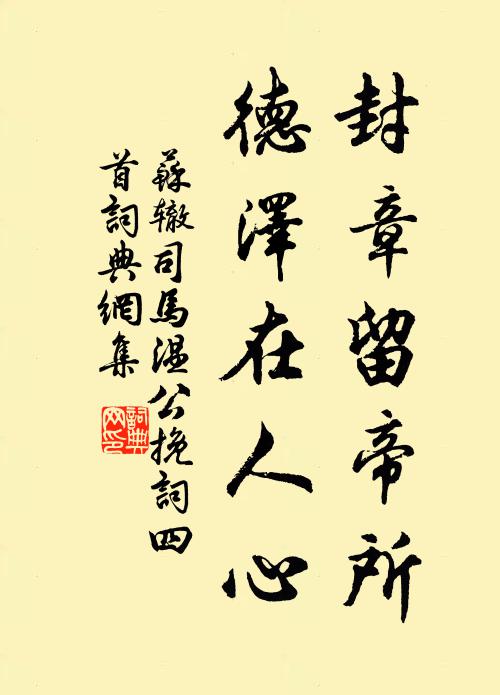 封章留帝所
德澤在人心
蘇辙司馬温公挽詞四
首詞典網集
詞典网印